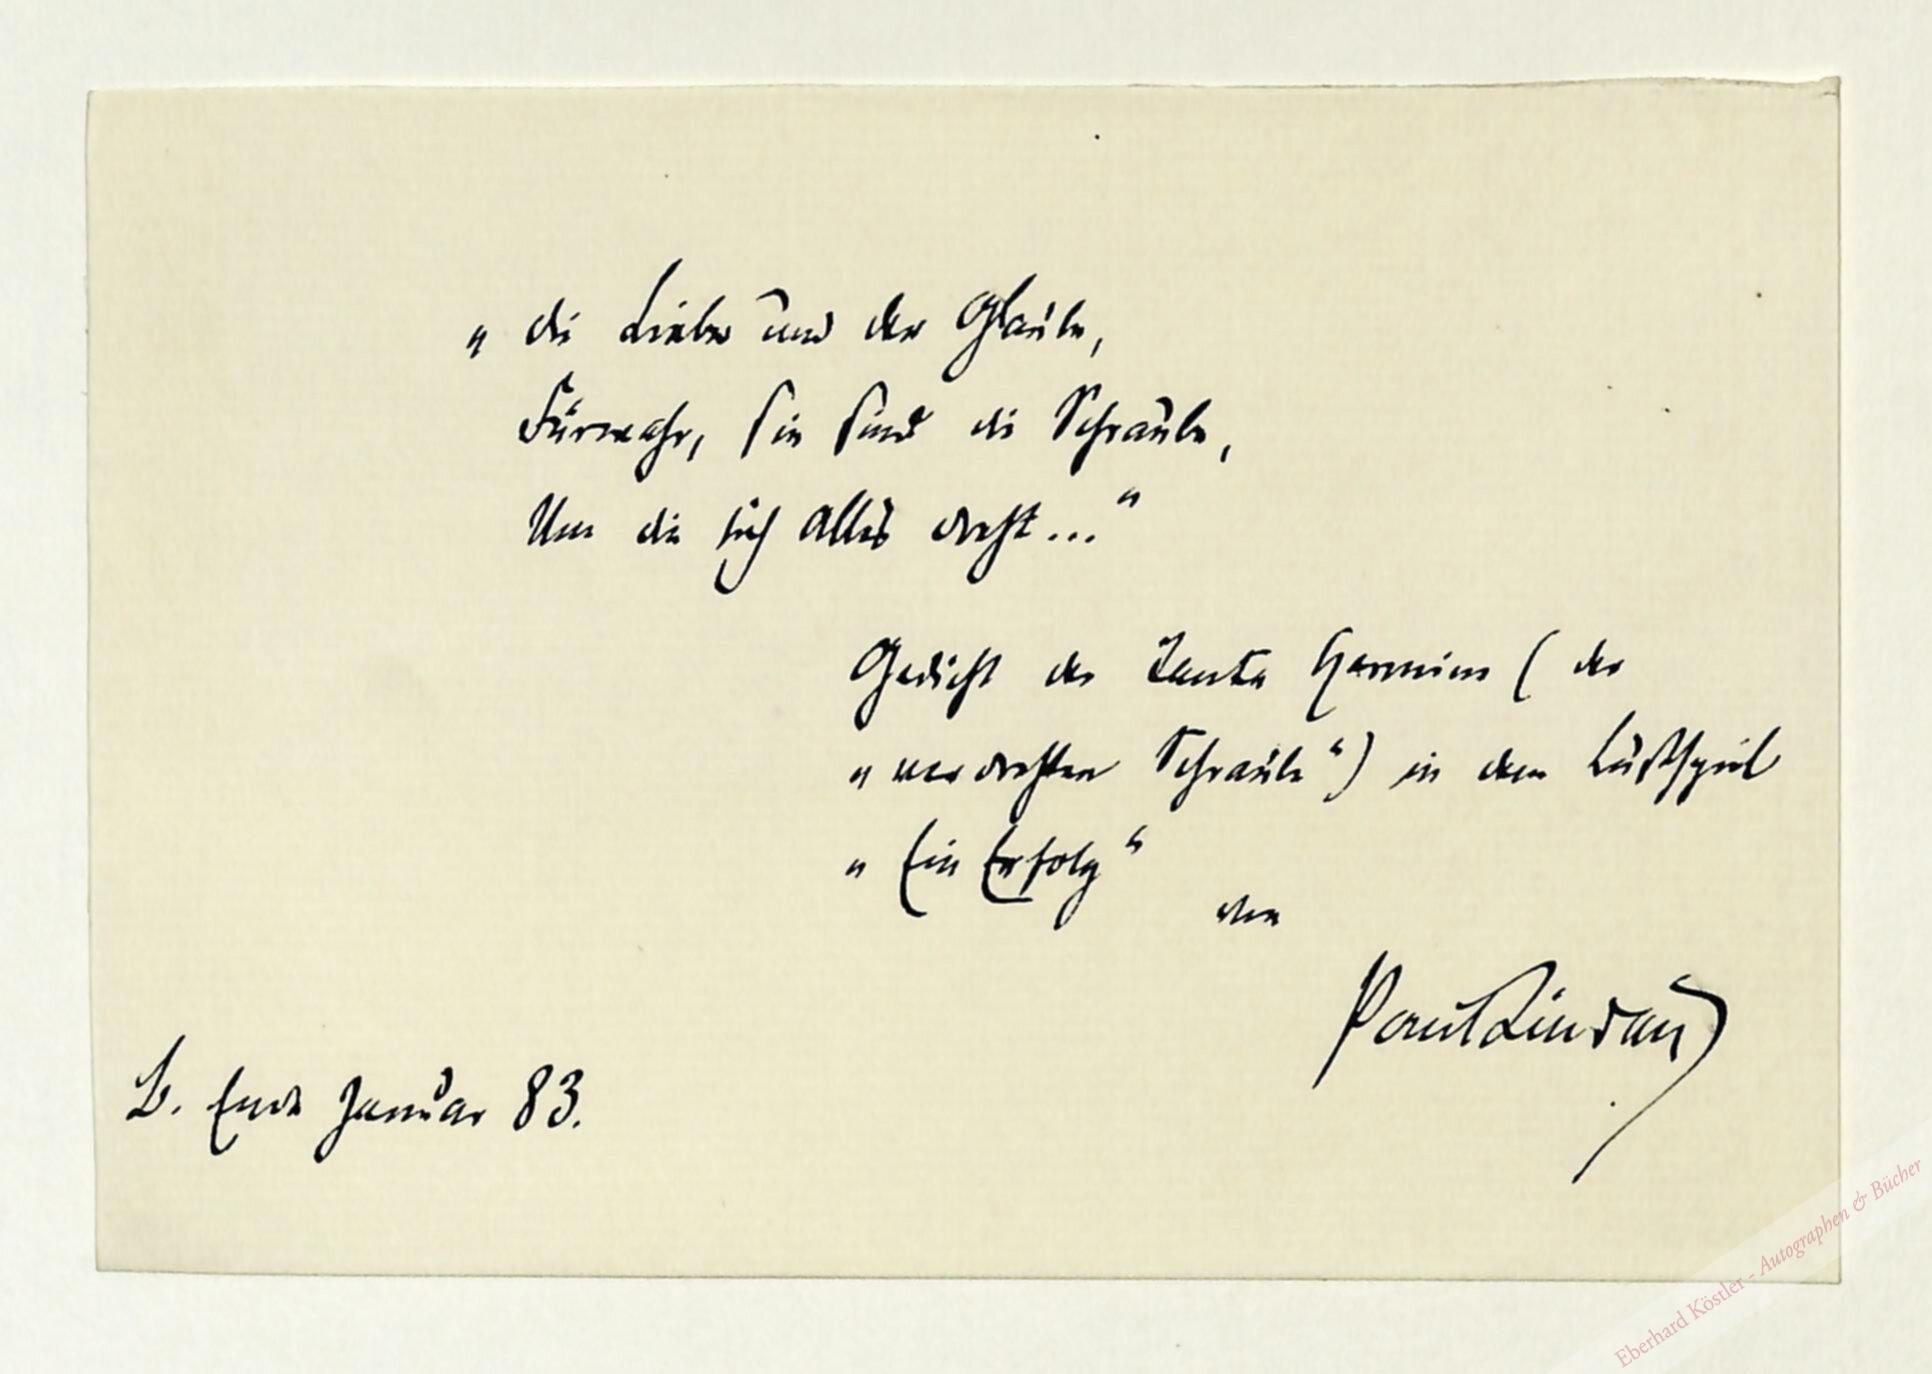 „die Liebe und der Glaube,
Fürwahr, sie sind die Schraube,
Um die sich alles dreht..."
Gedicht der Tante Hermine (der
„verdrehten Schraube") in dem Lustspiel
„Ein Erfolg"
von
Paul Lindau
B. Ende Januar 83.
Eberhard Köstler - Autographen & Bücher